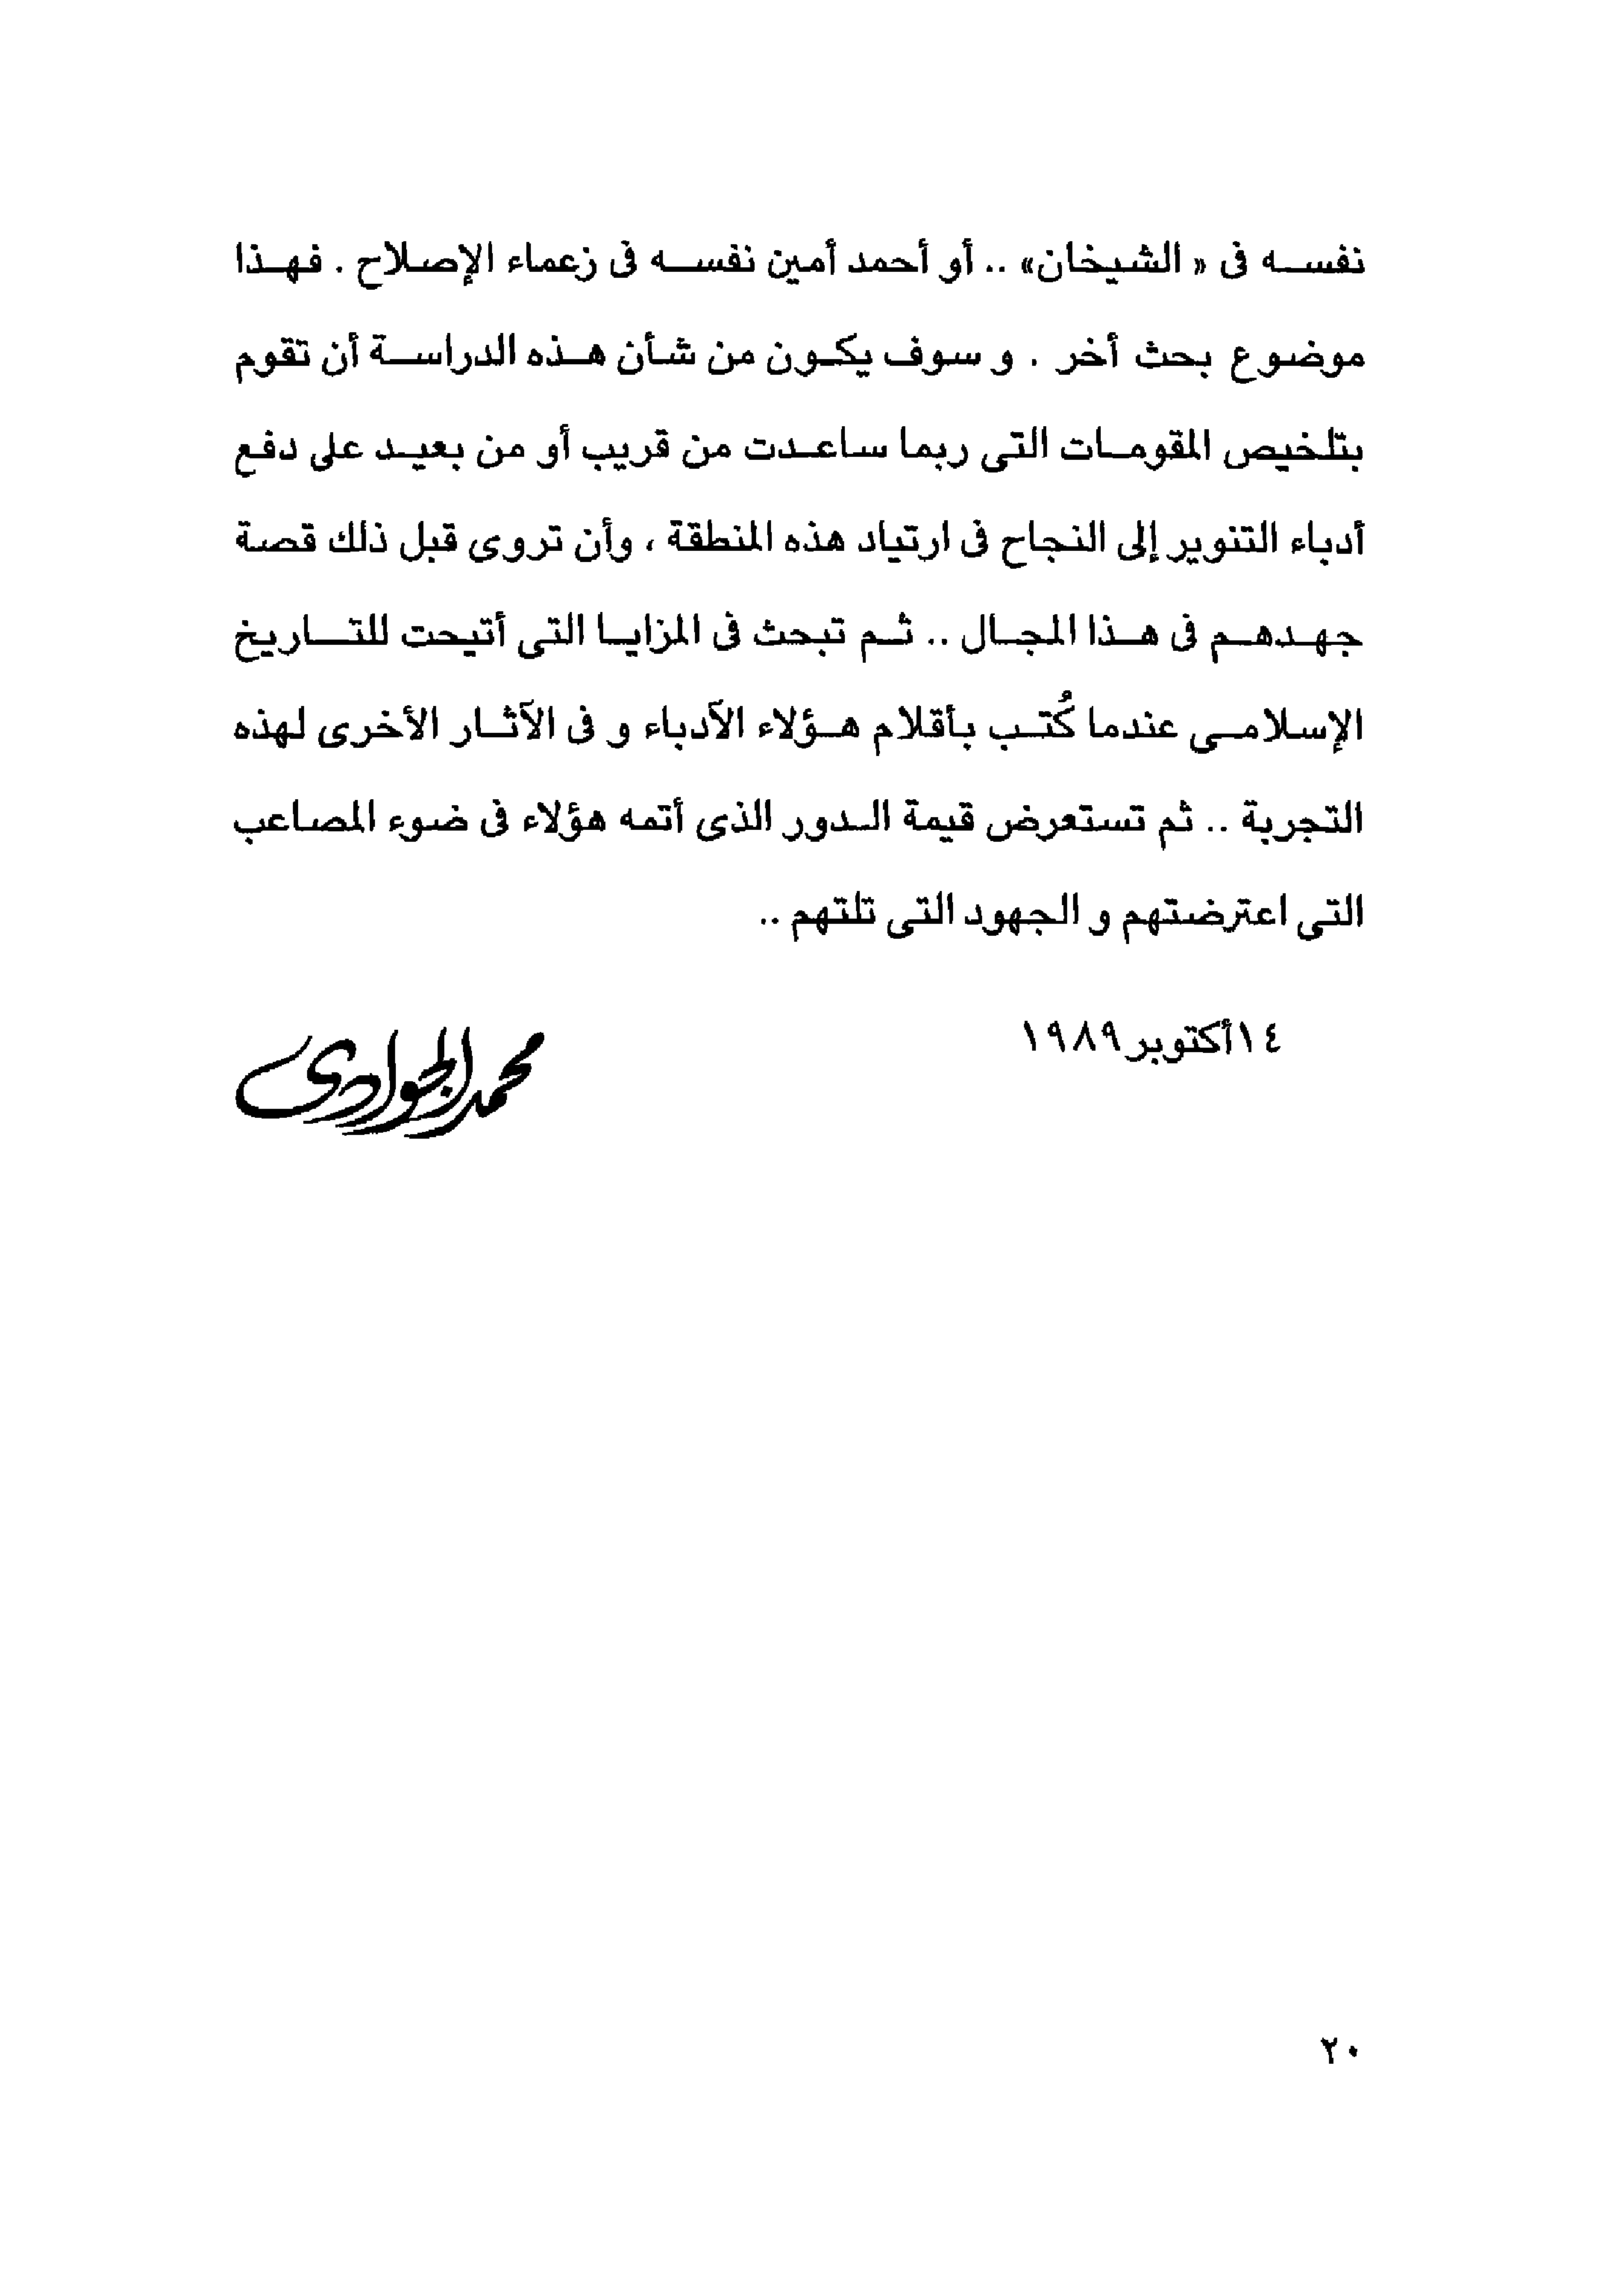 نفسه فى « الشيخان» .. أو أحمد أمين نفسه فى زعماء الإصلاح . فهذا
موضوع بحث أخر . و سوف يكون من شأن هذه الدراسة أن تقوم
بتلخيص المقومات التى ربما ساعدت من قريب أو من بعيد على دفع
أدباء التنوير إلى النجاح فى ارتياد هذه المنطقة ، وأن تروى قبل ذلك قصة
جهدهم فى هذا المجال .. ثم تبحث فى المزايا التى أتيحت للتاريخ
الإسلامى عندما كُتب بأقلام هؤلاء الأدباء و فى الآثار الأخرى لهذه
التجربة .. ثم تستعرض قيمة الدور الذى أتمه هؤلاء فى ضوء المصاعب
التى اعترضتهم و الجهود التى تلتهم ..
١٤أكتوبر١٩٨٩
محمد الجوادى
٢٠